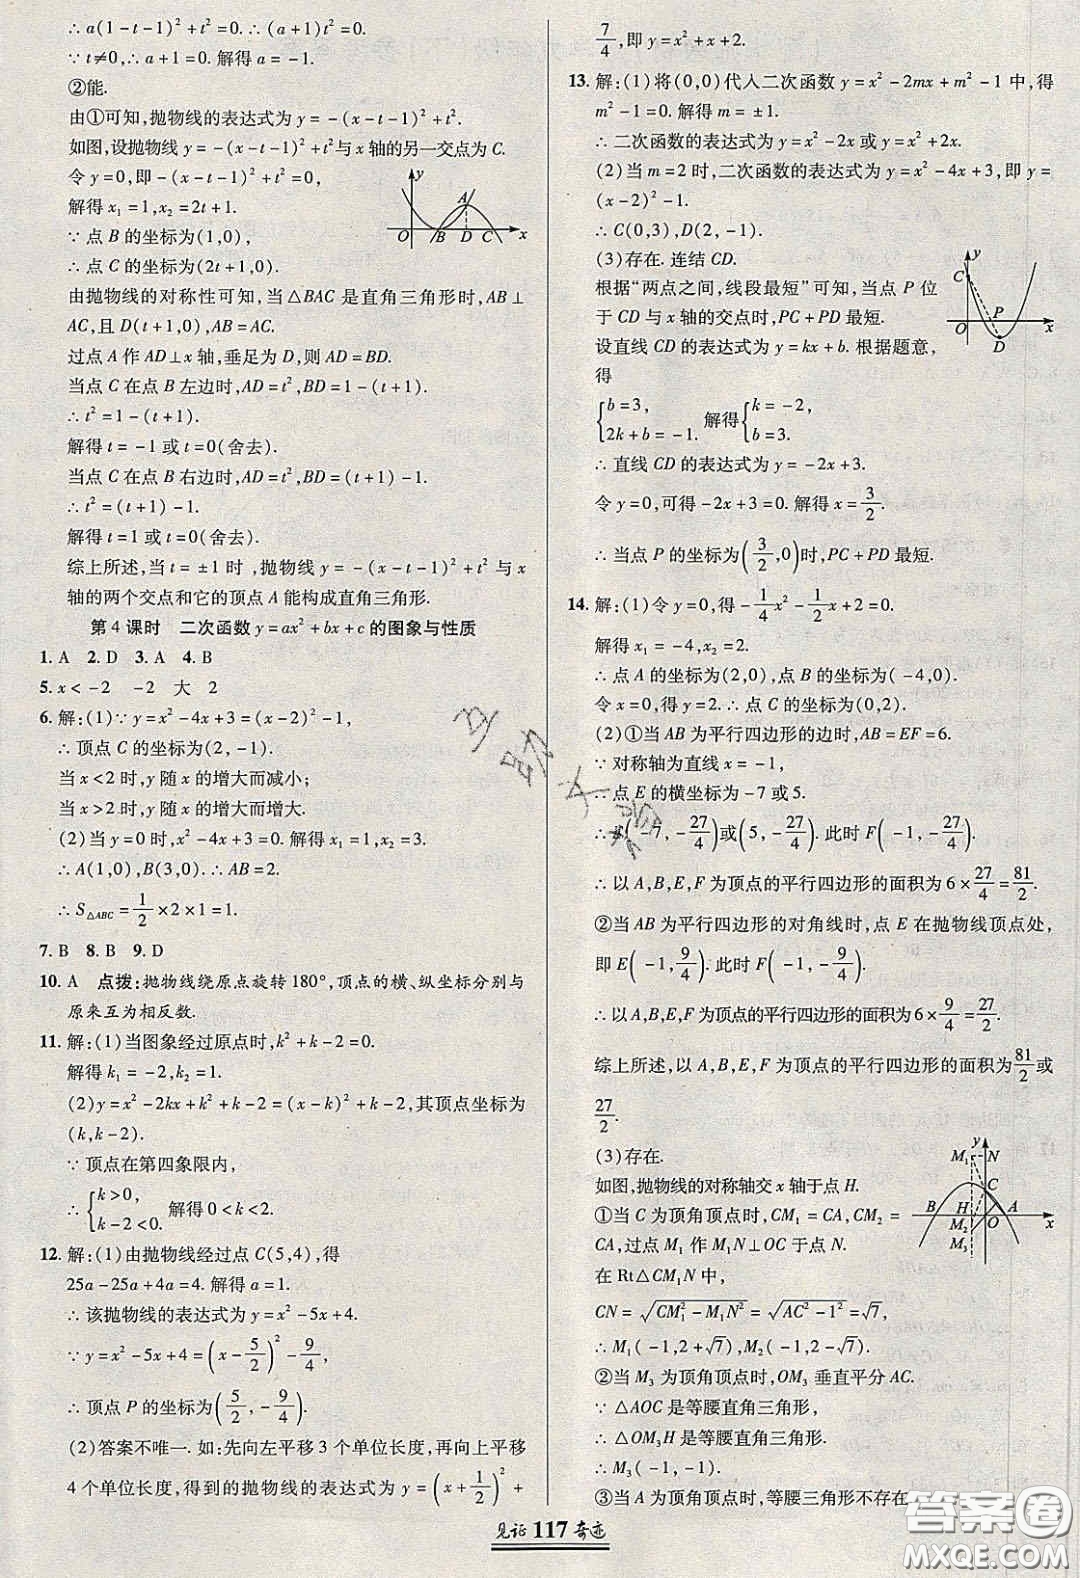 ∴ a(1-t-1)²+t²=0. ∴ (a+1)t²=0.
∵ t≠0, ∴ a+1=0. 解得 a=-1.
②能.
由①可知,抛物线的表达式为 y=-(x-t-1)²+t².
如图,设抛物线 y=-(x-t-1)²+t²与 x 轴的另一交点为 C.
令 y=0,即-(x-t-1)²+t²=0,
解得 x₁=1,x₂=2t+1.
∵ 点 B 的坐标为(1,0),
∴ 点 C 的坐标为(2t+1,0).
y A O B D C x
由抛物线的对称性可知,当△BAC 是直角三角形时,AB⊥
AC,且 D(t+1,0),AB=AC.
过点 A 作 AD⊥x 轴,垂足为 D,则 AD=BD.
当点 C 在点 B 左边时,AD=t²,BD=1-(t+1).
∴ t²=1-(t+1).
解得 t=-1 或 t=0(舍去).
当点 C 在点 B 右边时,AD=t²,BD=(t+1)-1.
∴ t²=(t+1)-1.
解得 t=1 或 t=0(舍去).
综上所述,当 t=±1 时,抛物线 y=-(x-t-1)²+t² 与 x
轴的两个交点和它的顶点 A 能构成直角三角形.
第 4 课时 二次函数 y=ax²+bx+c 的图象与性质
1. A 2. D 3. A 4. B
5. x<-2 -2 大 2
6. 解:(1)∵ y=x²-4x+3=(x-2)²-1,
∴ 顶点 C 的坐标为(2,-1).
当 x<2 时,y 随 x 的增大而减小;
当 x>2 时,y 随 x 的增大而增大.
(2)当 y=0 时,x²-4x+3=0. 解得 x₁=1,x₂=3.
∴ A(1,0),B(3,0). ∴ AB=2.
∴ S△ABC=1/2×2×1=1.
7. B 8. B 9. D
10. A 点拨:抛物线绕原点旋转 180°,顶点的横、纵坐标分别与
原来互为相反数.
11. 解:(1)当图象经过原点时,k²+k-2=0.
解得 k₁=-2,k₂=1.
(2)y=x²-2kx+k²+k-2=(x-k)²+k-2,其顶点坐标为
(k,k-2).
∵ 顶点在第四象限内,
∴ {k>0, k-2<0. 解得 0<k<2.
12. 解:(1)由抛物线经过点 C(5,4),得
25a-25a+4a=4. 解得 a=1.
∴ 该抛物线的表达式为 y=x²-5x+4.
∵ y=x²-5x+4=(x-5/2)²-9/4,
∴ 顶点 P 的坐标为(5/2,-9/4).
(2)答案不唯一. 如:先向左平移 3 个单位长度,再向上平移
4 个单位长度,得到的抛物线的表达式为 y=(x+1/2)²+
7/4,即 y=x²+x+2.
13. 解:(1)将(0,0)代入二次函数 y=x²-2mx+m²-1 中,得
m²-1=0. 解得 m=±1.
∴ 二次函数的表达式为 y=x²-2x 或 y=x²+2x.
(2)当 m=2 时,二次函数的表达式为 y=x²-4x+3,即 y=
(x-2)²-1.
∴ C(0,3),D(2,-1).
(3)存在. 连结 CD.
根据“两点之间,线段最短”可知,当点 P 位
于 CD 与 x 轴的交点时,PC+PD 最短.
设直线 CD 的表达式为 y=kx+b. 根据题意,
得
y C P O D x
{b=3, 2k+b=-1. 解得{k=-2, b=3.
∴ 直线 CD 的表达式为 y=-2x+3.
令 y=0,可得-2x+3=0. 解得 x=3/2.
∴ 当点 P 的坐标为(3/2,0)时,PC+PD 最短.
14. 解:(1)令 y=0,得-1/4x²-1/2x+2=0.
解得 x₁=-4,x₂=2.
∴ 点 A 的坐标为(2,0),点 B 的坐标为(-4,0).
令 x=0,得 y=2. ∴ 点 C 的坐标为(0,2).
(2)①当 AB 为平行四边形的边时,AB=EF=6.
∵ 对称轴为直线 x=-1,
∴ 点 E 的横坐标为-7 或 5.
∴ E(-7,-27/4)或(5,-27/4). 此时 F(-1,-27/4).
∴ 以 A,B,E,F 为顶点的平行四边形的面积为 6×27/4=81/2.
②当 AB 为平行四边形的对角线时,点 E 在抛物线顶点处,
即 E(-1,9/4). 此时 F(-1,-9/4).
∴ 以 A,B,E,F 为顶点的平行四边形的面积为 6×9/4=27/2.
综上所述,以 A,B,E,F 为顶点的平行四边形的面积为81/2或
27/2.
(3)存在.
如图,抛物线的对称轴交 x 轴于点 H.
①当 C 为顶角顶点时,CM₁=CA,CM₂=
CA,过点 M₁ 作 M₁N⊥OC 于点 N.
在 Rt△CM₁N 中,
y M₁ N C B H A O x M₂ M₃
CN=√(CM₁²-M₁N²)=√(AC²-1²)=√7,
∴ M₁(-1,2+√7),M₂(-1,2-√7).
②当 M₃ 为顶角顶点时,OM₃ 垂直平分 AC.
∵ △AOC 是等腰直角三角形,
∴ △OM₃H 是等腰直角三角形.
∴ M₃(-1,-1).
③当 A 为顶角顶点时,等腰三角形不存在
见证 117 奇迹
答案圈
MXQE.COM